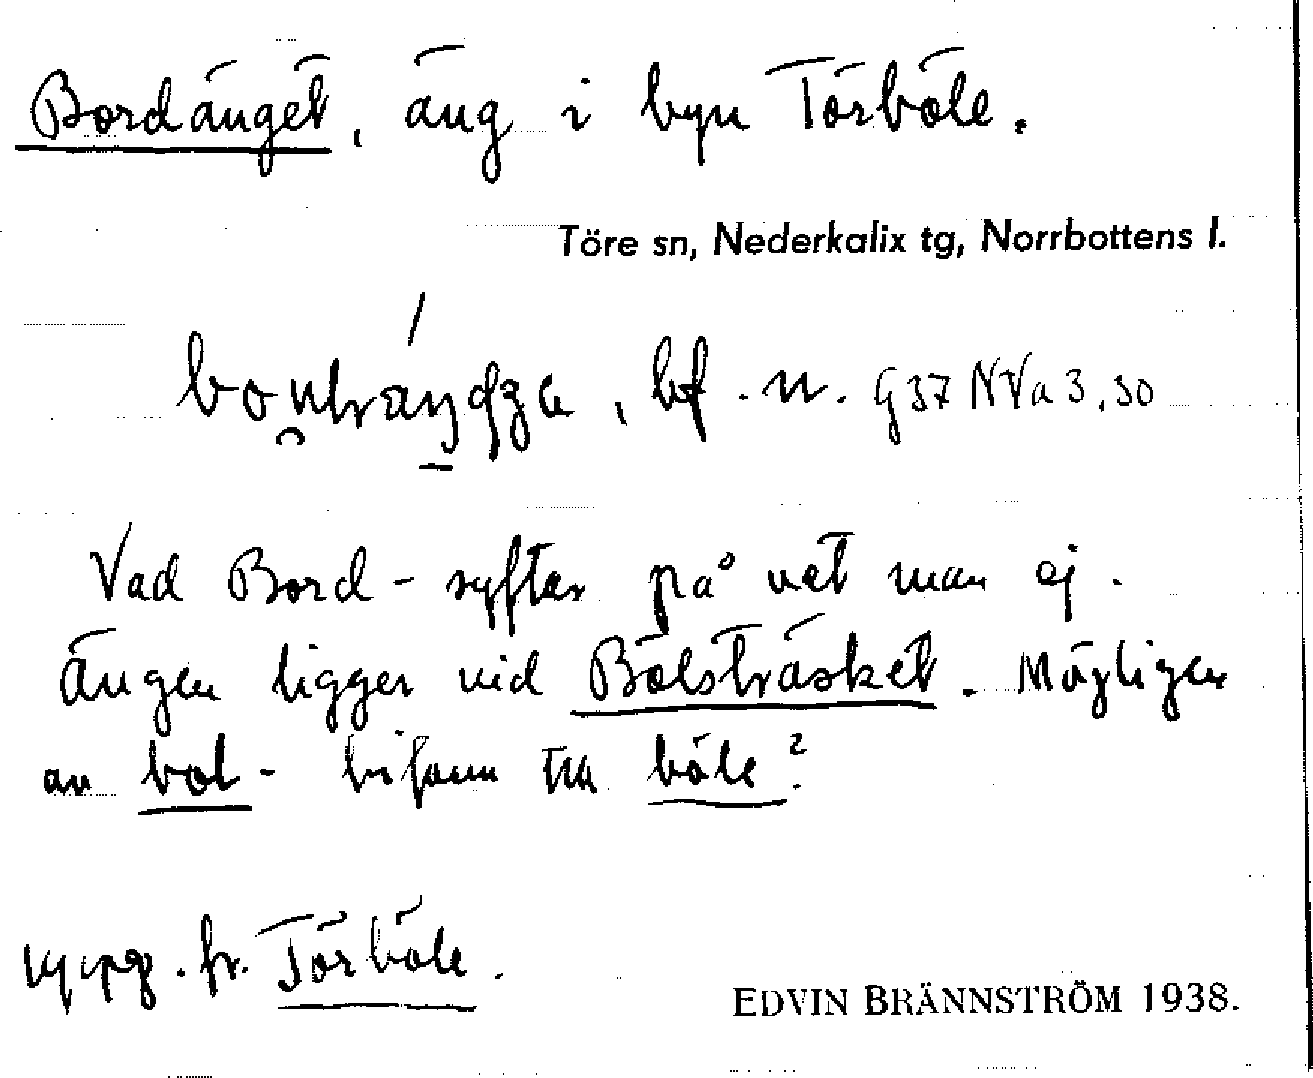 Bordänget, äng i byn Törböle.
Töre sn, Nederkalix tg, Norrbottens l.
bf. n. G37 NVa 3,30
Vad Bord- syftar på vet man ej.
Ängen ligger vid Bölsträsket. Möjligen
av bol- biform till böle?
uppg. fr. Törböle.
EDVIN BRÄNNSTRÖM 1938.